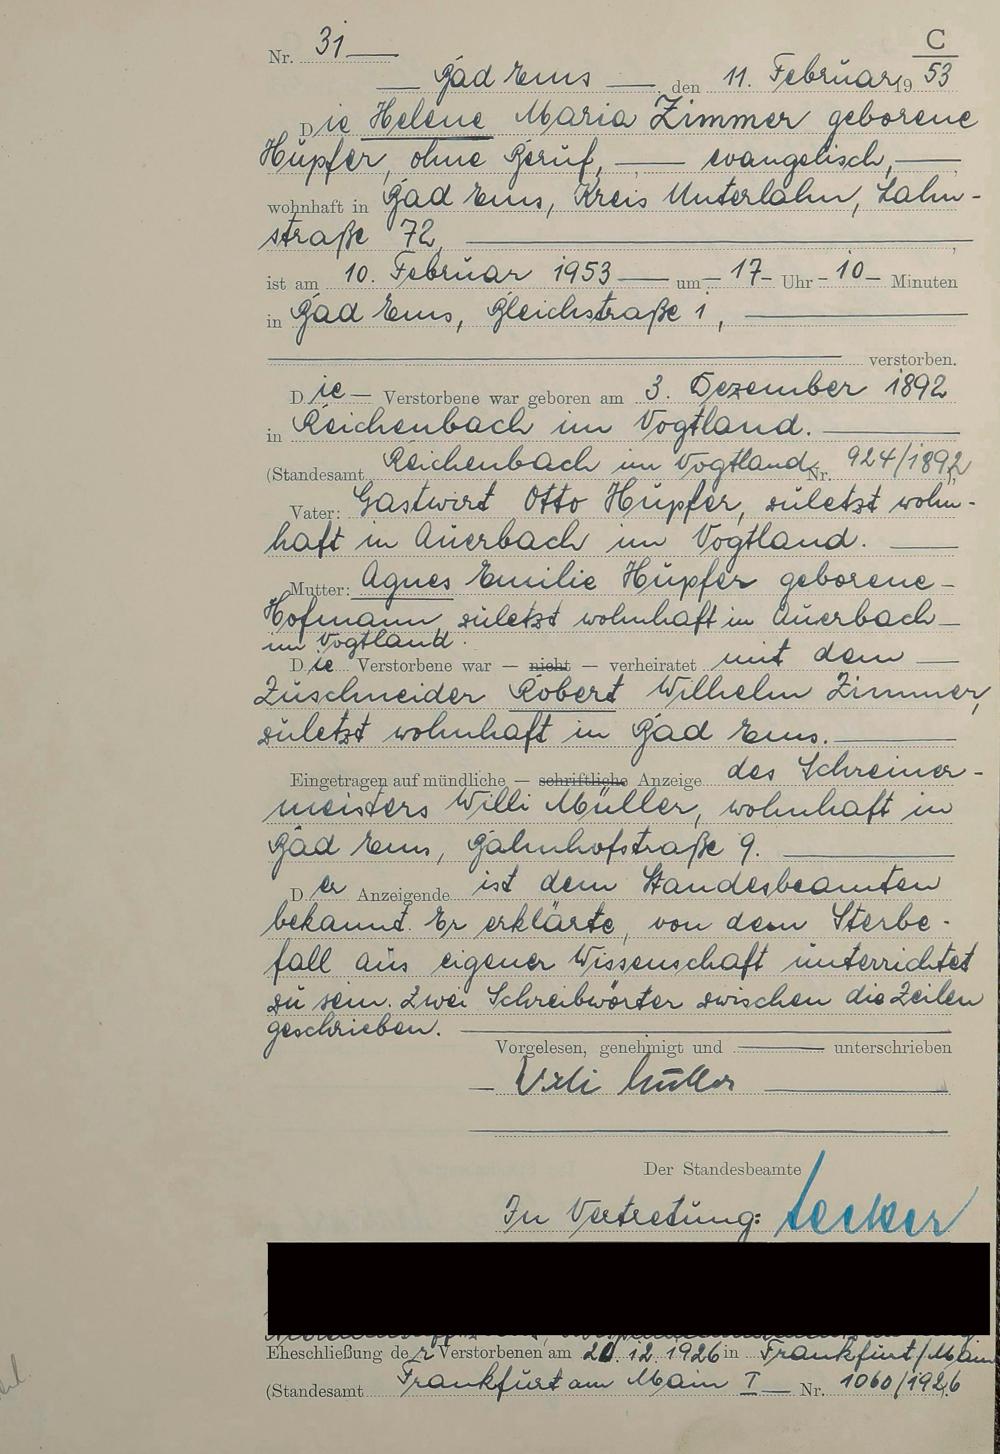 C
Nr. 31
Bad Ems, den 11. Februar 19 53
Die Helene Maria Zimmer geborene
Hüpfer, ohne Beruf, evangelisch,
wohnhaft in Bad Ems, Kreis Unterlahn, Lahn-
straße 72,
ist am 10. Februar 1953 um 17 Uhr 10 Minuten
in Bad Ems, Bleichstraße 1,
verstorben.
Die Verstorbene war geboren am 3. Dezember 1892
in Reichenbach im Vogtland.
(Standesamt Reichenbach im Vogtland Nr. 924/1892)
Vater: Gastwirt Otto Hüpfer, zuletzt wohn-
haft in Auerbach im Vogtland.
Mutter: Agnes Emilie Hüpfer geborene
Hofmann zuletzt wohnhaft in Auerbach
im Vogtland.
Die Verstorbene war — nicht — verheiratet mit dem
Zuschneider Robert Wilhelm Zimmer,
zuletzt wohnhaft in Bad Ems.
Eingetragen auf mündliche — schriftliche Anzeige des Schreiner-
meisters Willi Müller, wohnhaft in
Bad Ems, Bahnhofstraße 9.
Der Anzeigende ist dem Standesbeamten
bekannt. Er erklärte, von dem Sterbe-
fall aus eigener Wissenschaft unterrichtet
zu sein. Zwei Schreibwörter zwischen die Zeilen
geschrieben.
Vorgelesen, genehmigt und unterschrieben
Willi Müller
Der Standesbeamte
In Vertretung:
Eheschließung der Verstorbenen am 12. 1926 in Frankfurt/Main
(Standesamt Frankfurt am Main I Nr. 1060/1926